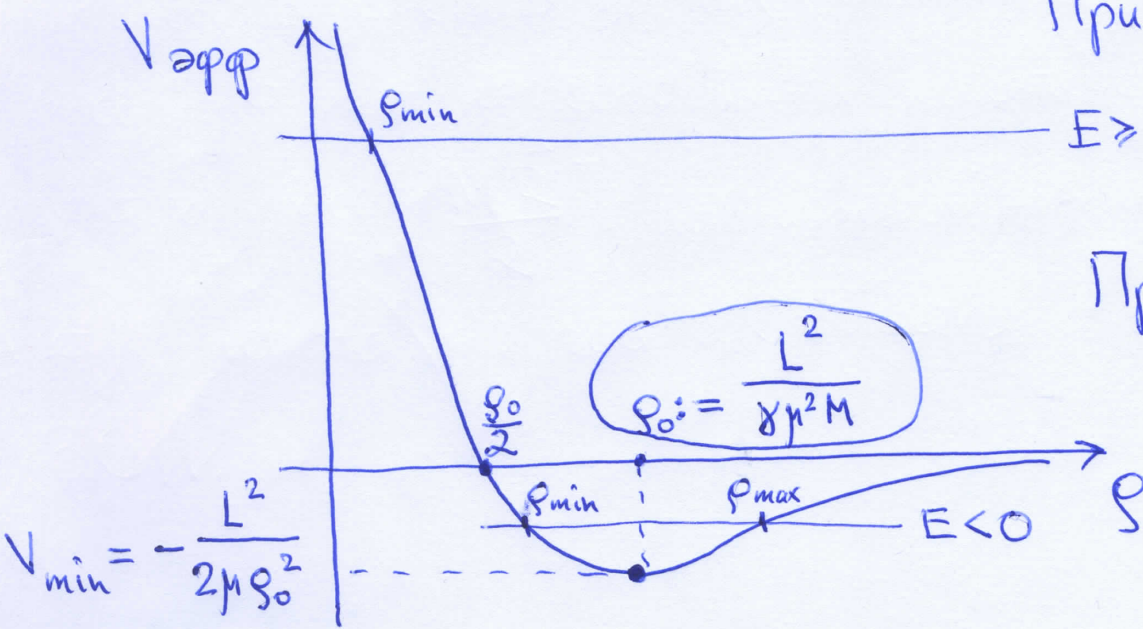 При
Vэфф
ρmin
E≥
Пр
ρ₀/2
ρ₀ := L²/(γμ²M)
ρmin
ρmax
E<0
ρ
Vmin = - L²/(2μρ₀²)